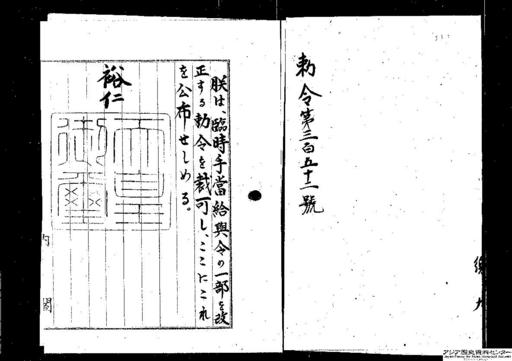 勅令第三百五十一號
朕は臨時手當給與令の一部を改
正する勅令を裁可し、ここにこれ
を公布せしめる。
裕仁
天皇
御璽
内閣
アジア歴史資料センター